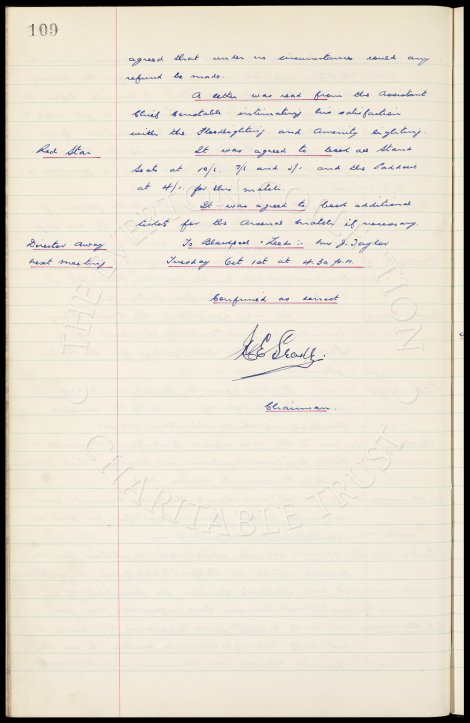 109
agreed that under no circumstance could any
refund be made.
A letter was read from the Assistant
Chief Constable intimating his satisfaction
with the Floodlighting and Amenity lighting.
Red Star
It was agreed to book all Stand
Seats at 10/6. 7/6 and 5/- and the Paddock
at 4/- for this match.
It was agreed to book additional
tickets for the Arsenal match if necessary.
Director Away
To Blackpool & Leeds :- Mr J. Taylor
next meeting
Tuesday Oct 1st at 4.30 p.m.
Confirmed as correct
Chairman.
© THE EVERTON COLLECTION ©
CHARITABLE TRUST